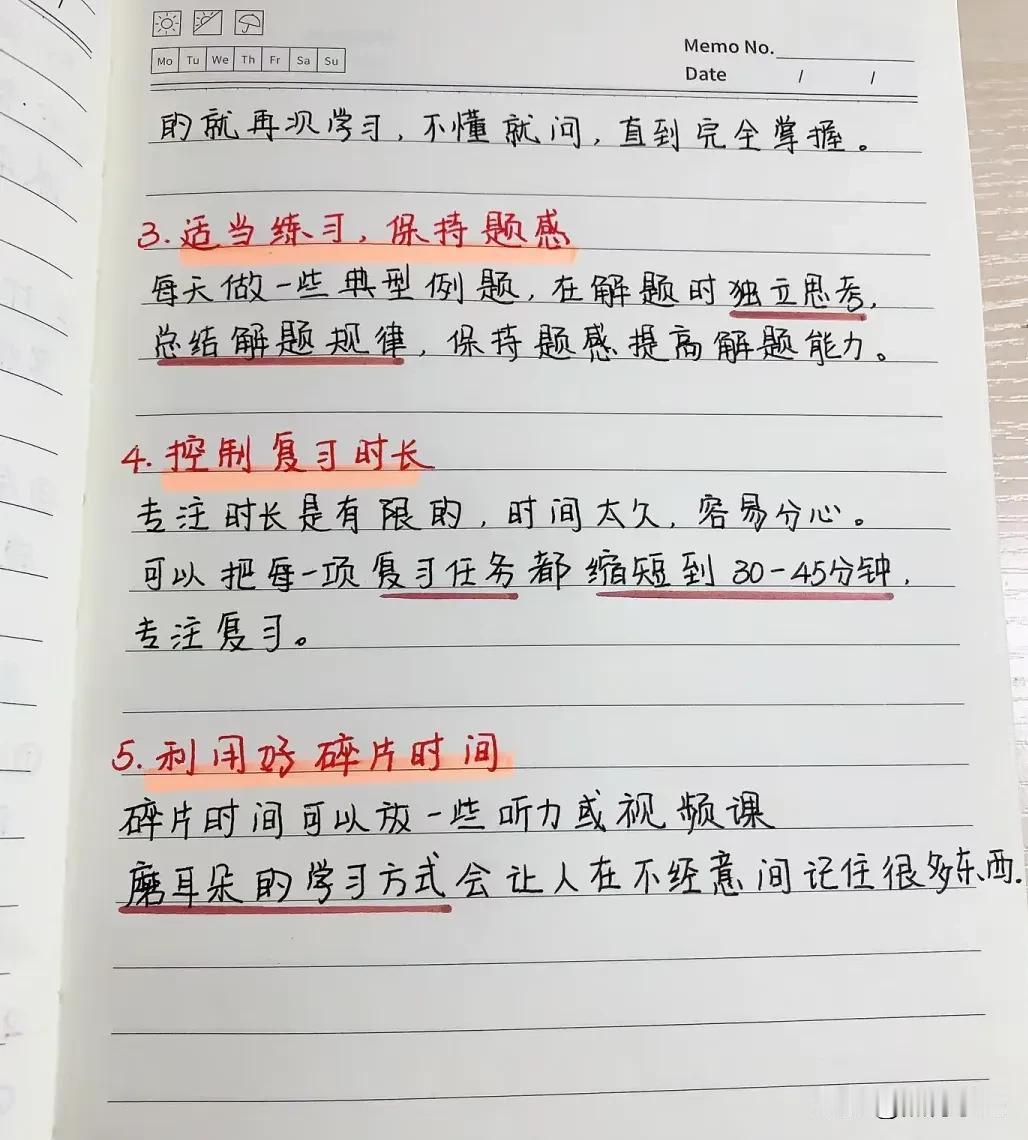 Mo Tu We Th Fr Sa Su
Memo No.
Date / /
的就再次学习,不懂就问,直到完全掌握。
3.适当练习,保持题感
每天做一些典型例题,在解题时独立思考,
总结解题规律,保持题感提高解题能力。
4.控制复习时长
专注时长是有限的,时间太久,容易分心。
可以把每一项复习任务都缩短到30-45分钟,
专注复习。
5.利用好碎片时间
碎片时间可以放一些听力或视频课
磨耳朵的学习方式会让人在不经意间记住很多东西.